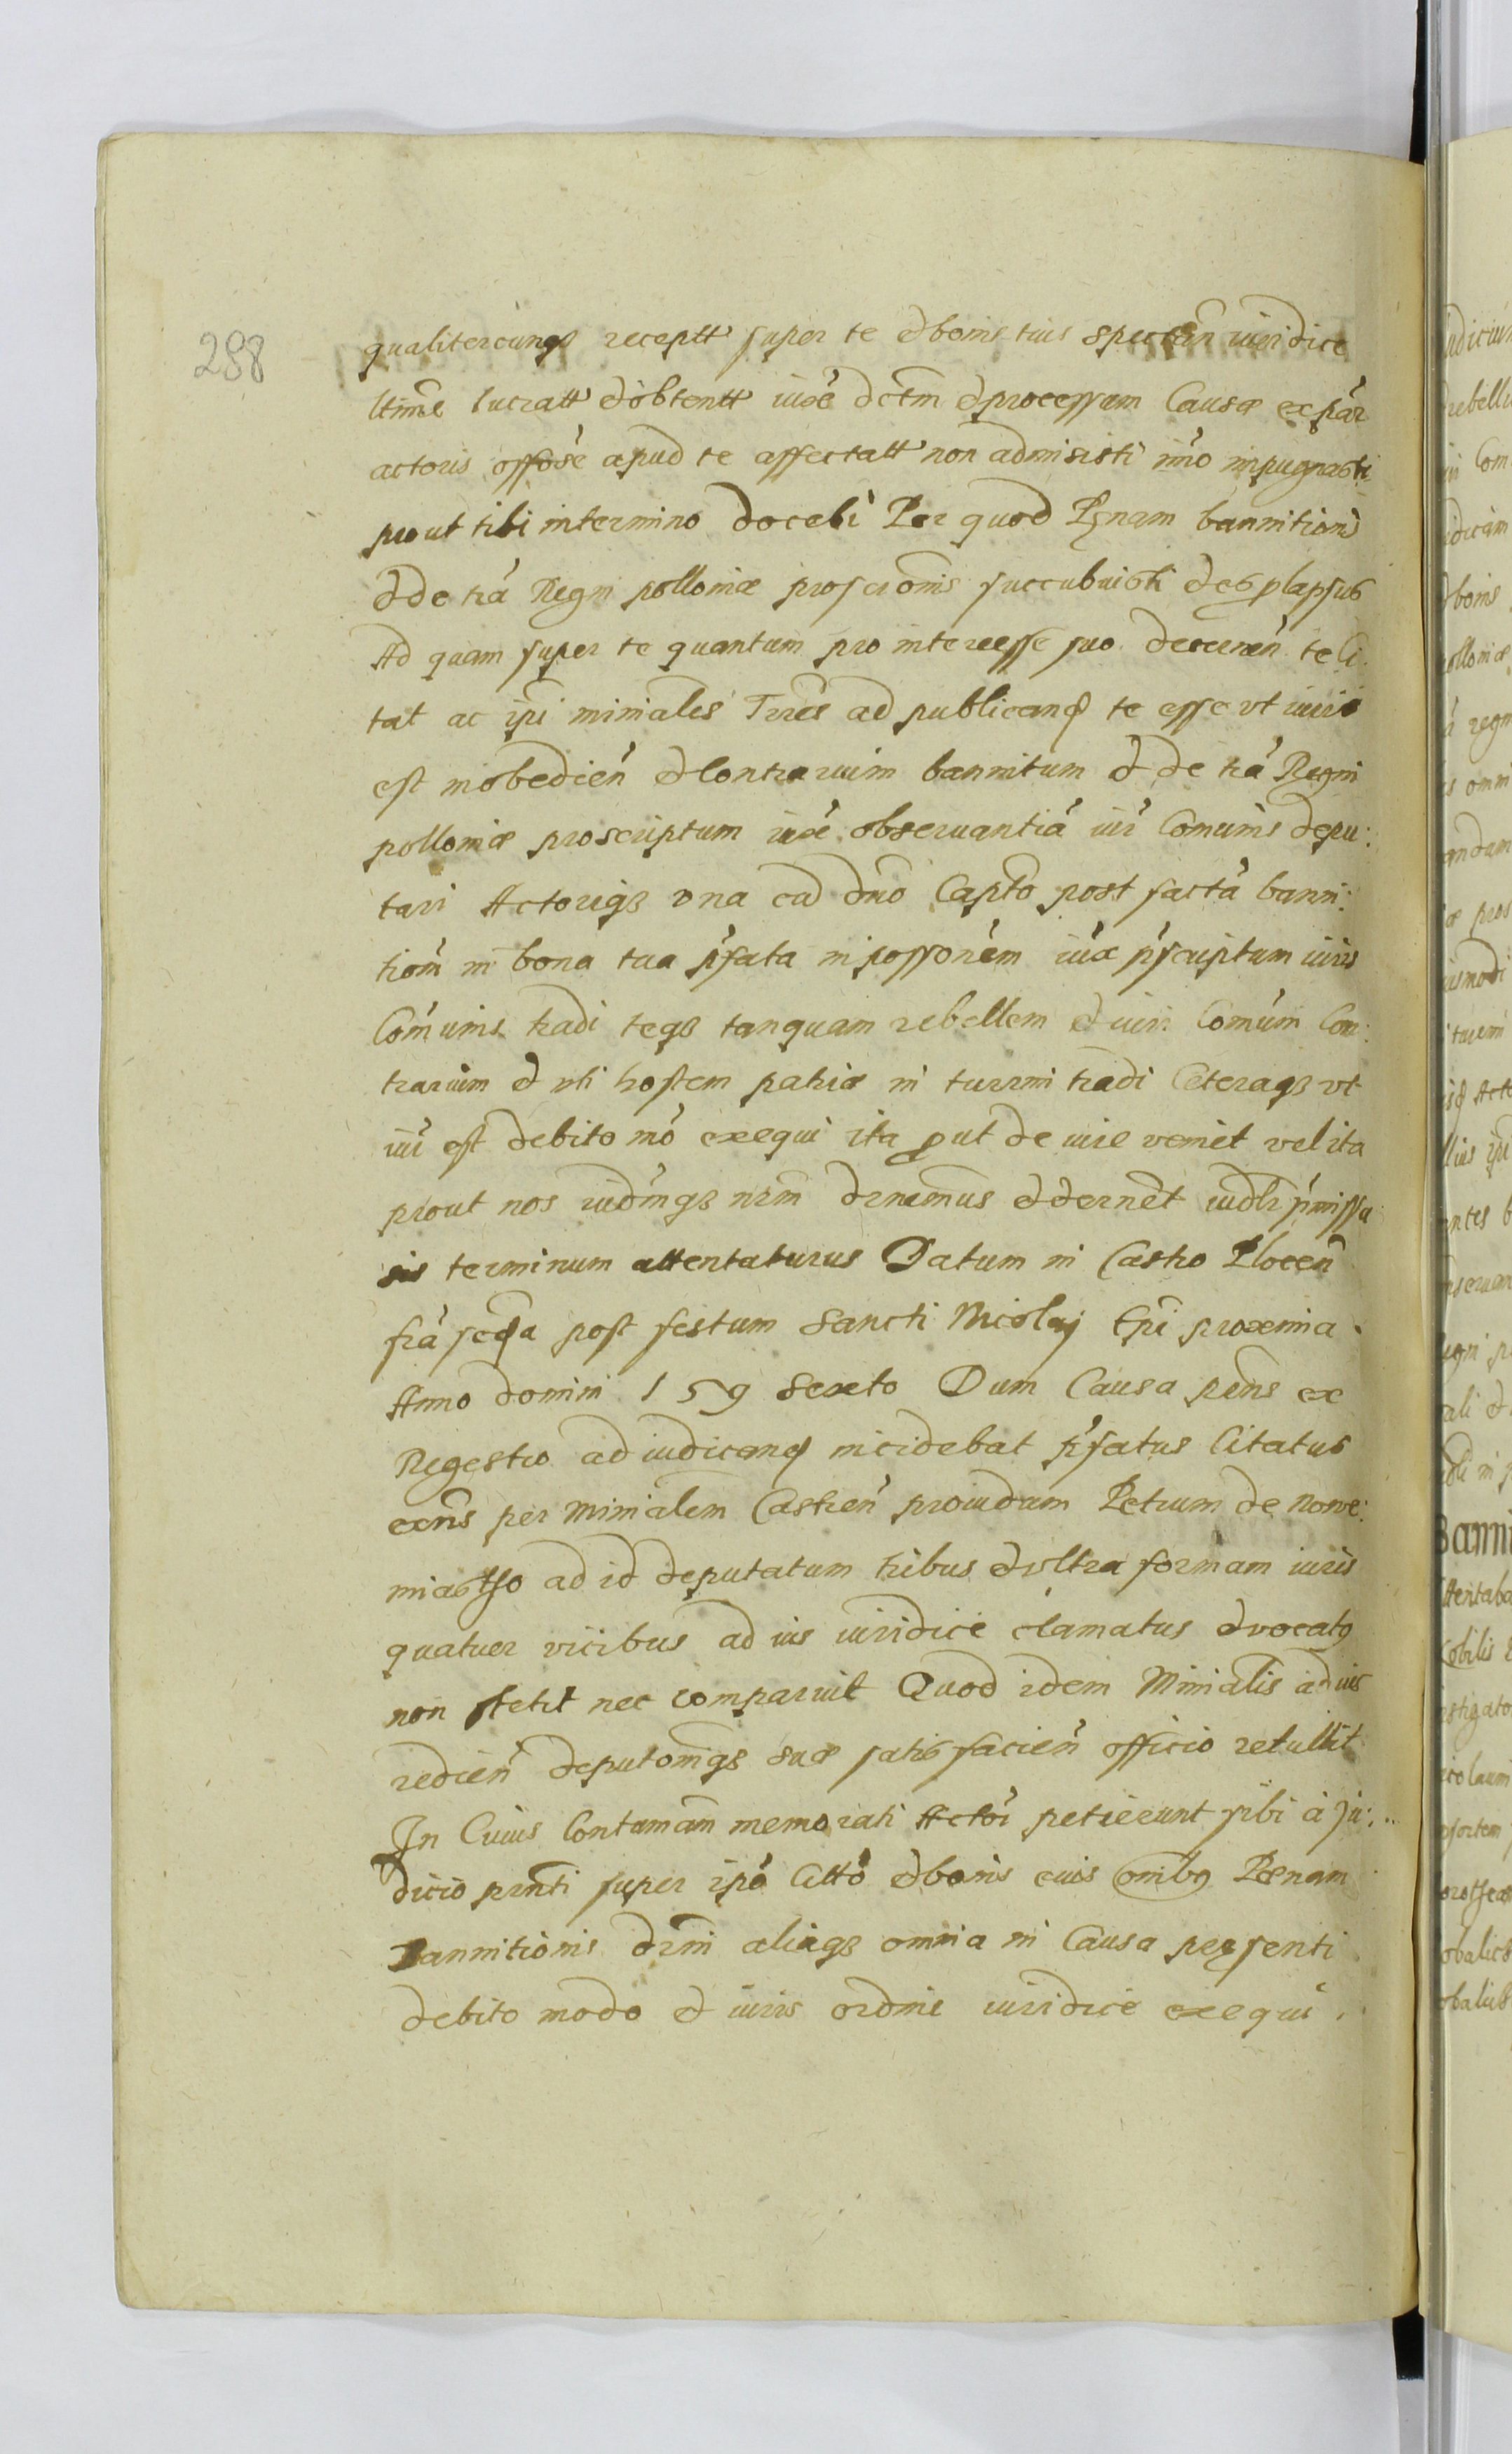 288
qualitercunqȝ receptt super te et bonis tuis spectan̄ iuridice
ltime lucratt et obtentt iuxe dctm et processum Causæ ex par
actoris offose apud te affectatt non admisisti imo impugnasti
prout tibi in termino docebi Per quod Pęnam bannitionis
et de tra Regni polloniæ proscronis succubuisti et es plapsus
Ad quam super te quantum pro interesse suo decernen te Ci
tat ac ipi miniales Trres ad publicand te esse vt iuris
est inobedien et Contrarium bannitum et de tra Regni
polloniæ proscriptum iuxe observantia iur Comunis depu:
tari Actoriqȝ vna cu dno Capto post facta banni:
tiom in bona tua pfata in possonem iux pscriptum iuris
Comunis tradi teqȝ tanquam rebellem et iuri Comuni Con:
trarium et vti hostem patriæ in turrim tradi Ceteraqȝ vt
iur est debito mo exequi ita put de iure veniet vel ita
prout nos iudmqȝ nrm drnemus et dernet iudlr pmissa
sis terminum attentaturus Datum in Castro Plocen
fra secda post festum Sancti Nicolaj Epi proxima
Anno domini 159 Sexto Dum Causa pens ex
Regestro ad iudicand incidebat pfatus Citatus
exns per Minialem Castren prouidum Petrum de Nowe:
miastho ad id deputatum tribus et vltra formam iuris
quatuer vicibus ad ius iuridice clamatus et vocatus
non stetit nec comparuit Quod idem Minialis ad ius
redien deputomqȝ suæ satisfacien officio retullit
In Cuius Contumam memorati Actori petierunt sibi à Ju:
dicio prnti super ipo Citto et bonis euis omibus Pænam
Bannitionis drni aliaqȝ omnia in Causa pręsenti
debito modo et iuris ordine iuridice exequi